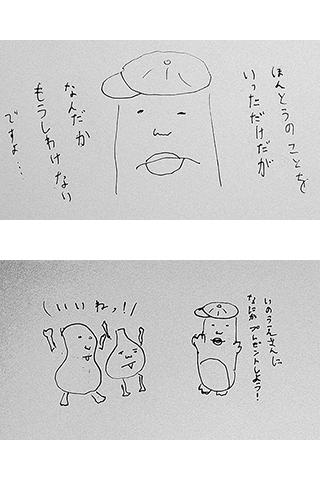 ほんとうのことを
いっただけだが
なんだか
もうしわけない
ですよ…
いのうえさんに
なにか プレゼントしよう!
(いいねっ!/